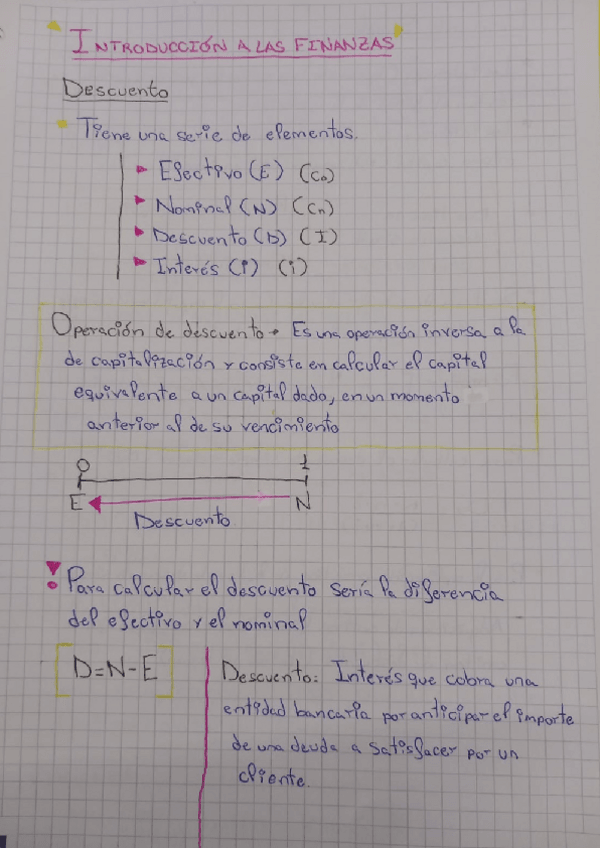 INTRODUCCIÓN A LAS FINANZAS
Descuento
Tiene una serie de elementos.
Efectivo (E) (Co)
Nominal (N) (Cn)
Descuento (D) (I)
Interés (i) (i)
Operación de descuento → Es una operación inversa a la
de capitalización y consiste en calcular el capital
equivalente a un capital dado, en un momento
anterior al de su vencimiento
0 1
E N
Descuento
Para calcular el descuento sería la diferencia
del efectivo y el nominal
D=N-E
Descuento: Interés que cobra una
entidad bancaria por anticipar el importe
de una deuda a satisfacer por un
cliente.